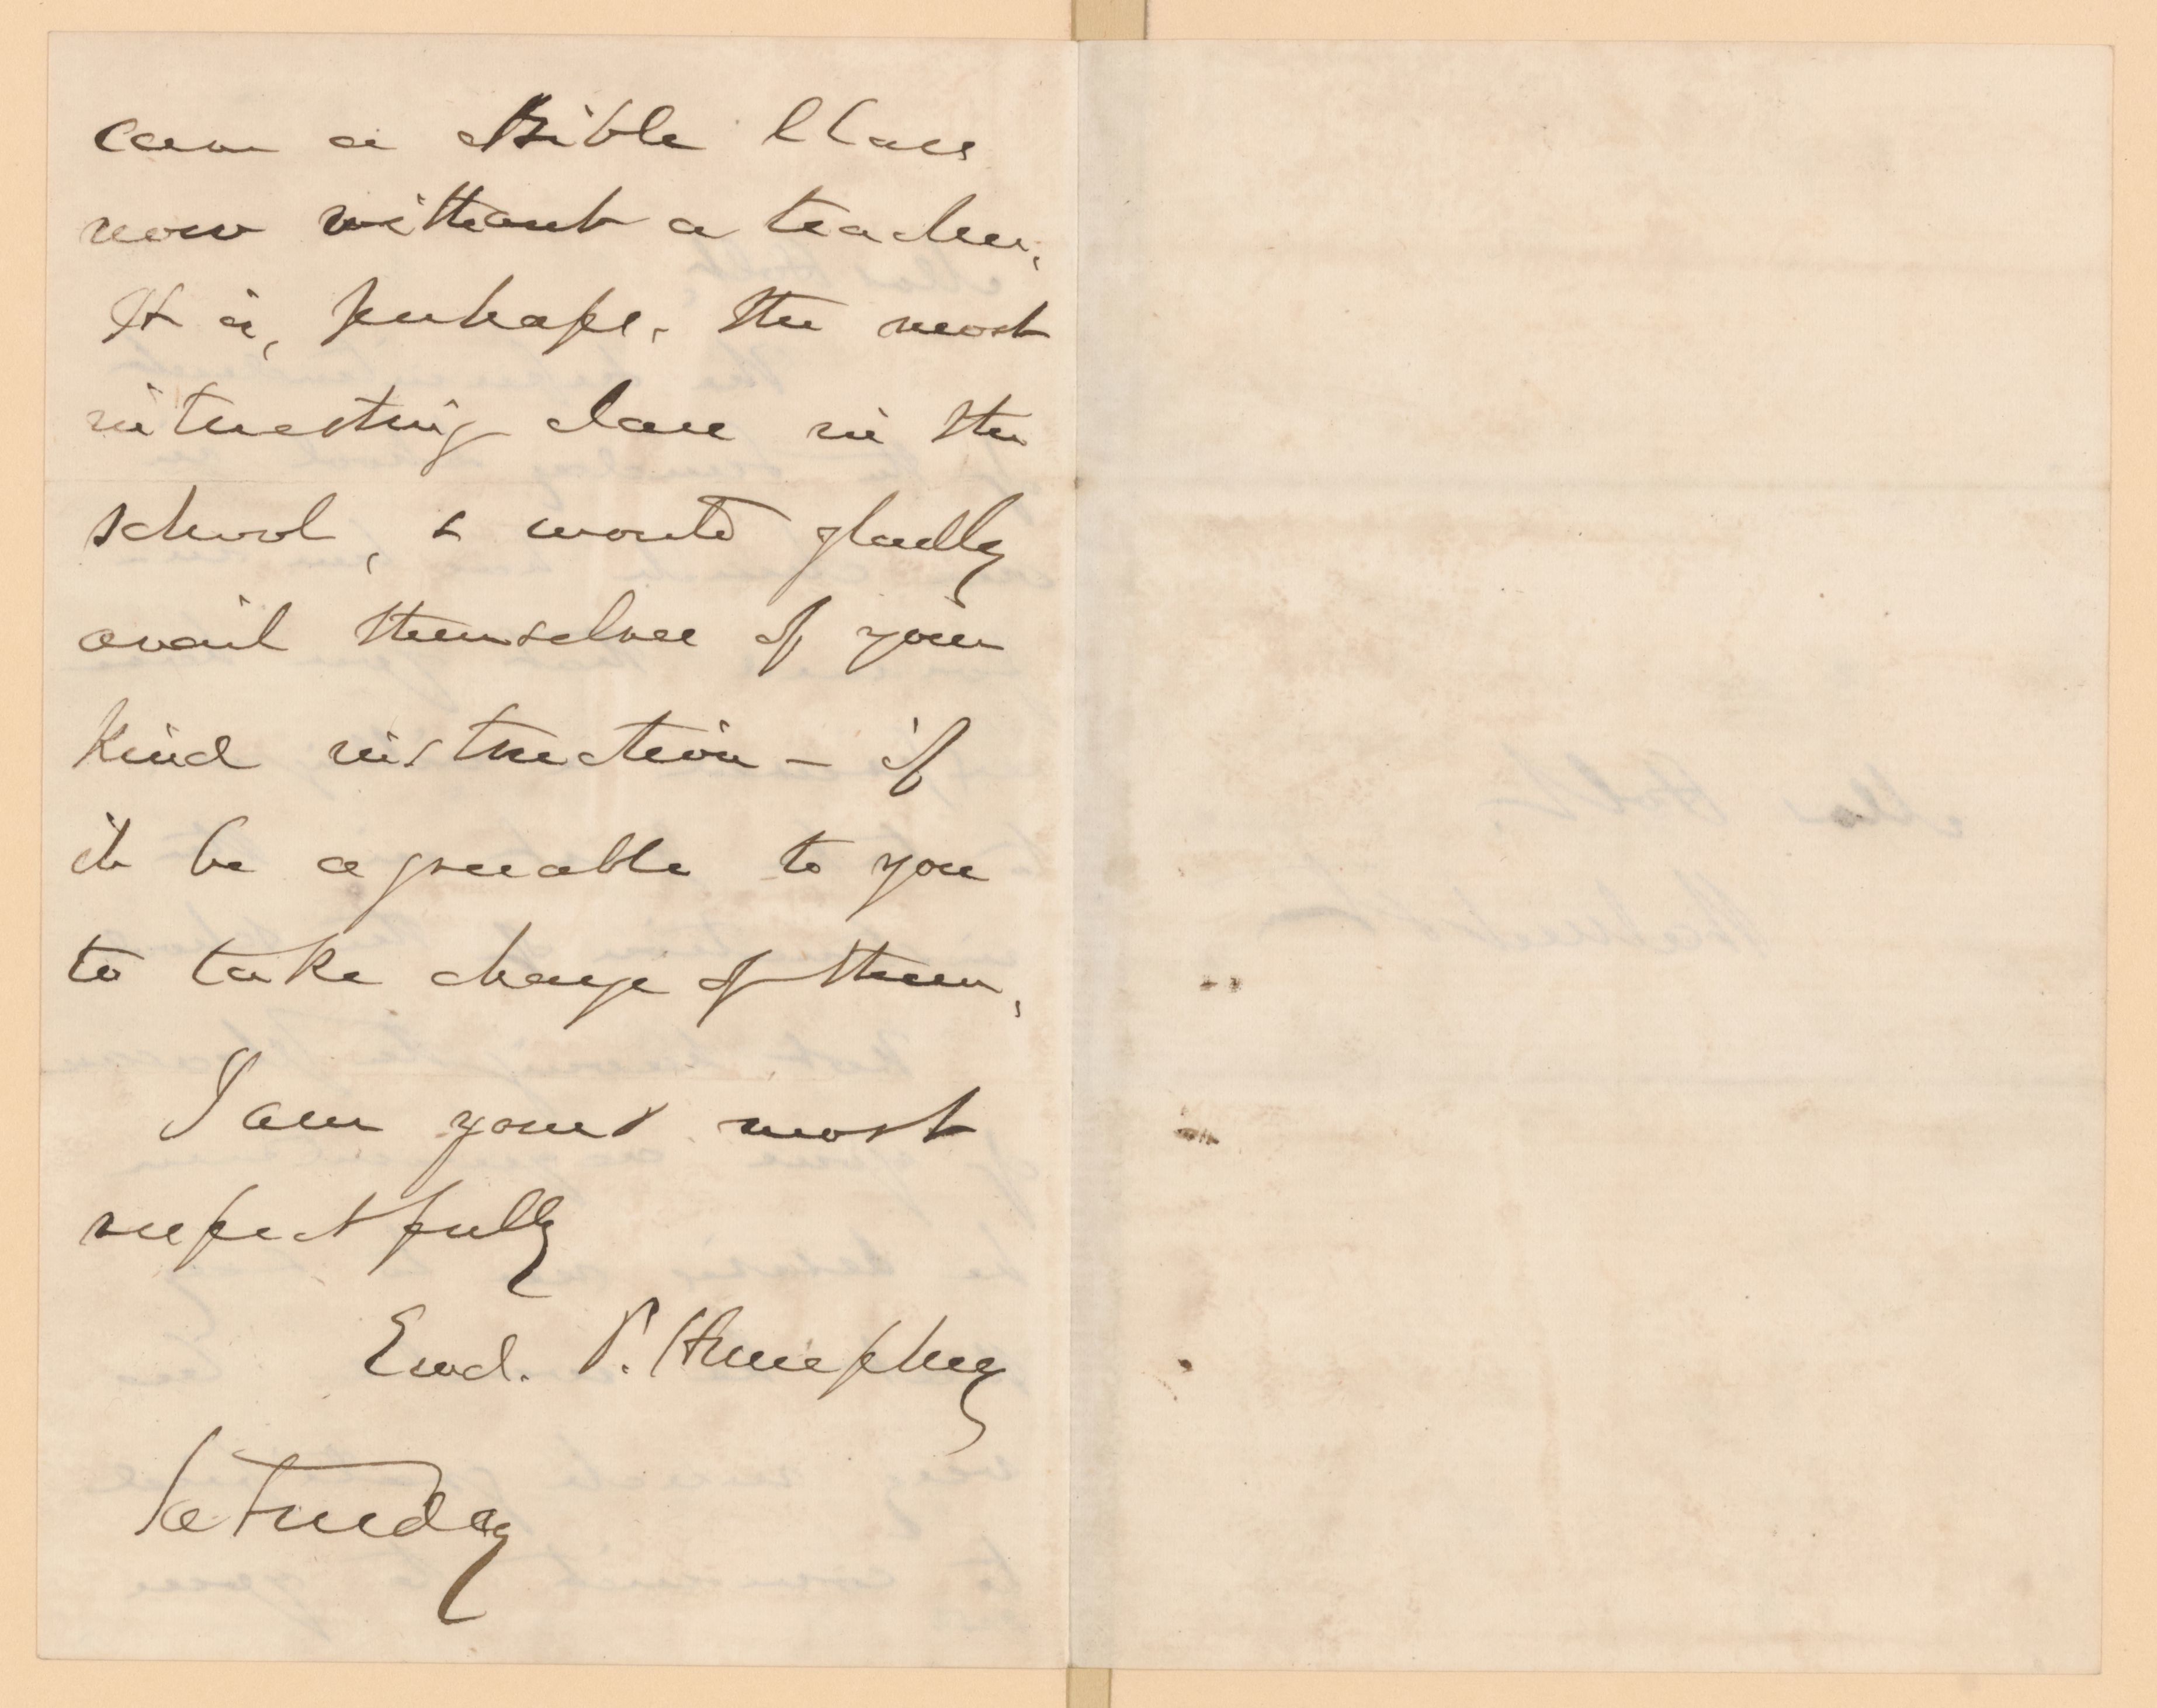 care a Bible Class
now without a teacher.
It is, perhaps, the most
interesting class in the
school, & would gladly
avail themselves of your
kind instruction – if
it be agreeable to you
to take charge of them.
I am yours most
respectfully
Ewd. P. Humphrey
Saturday